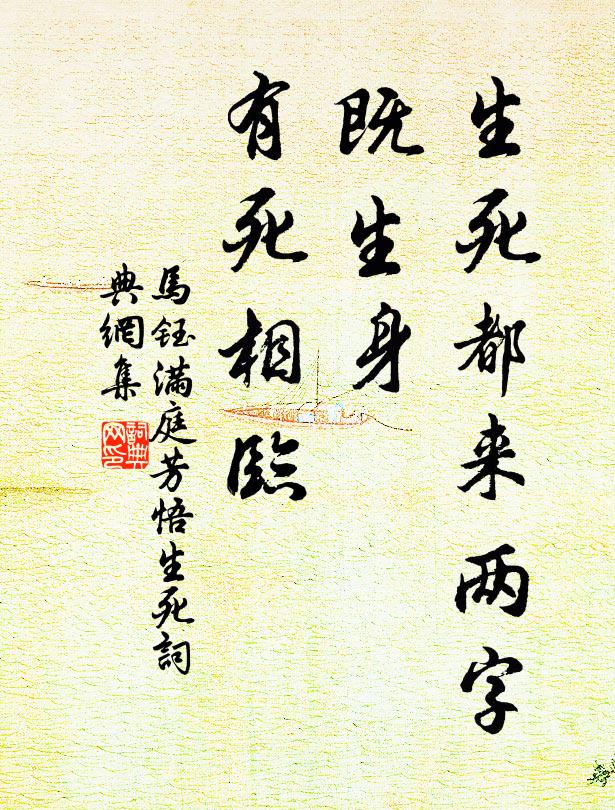 生死都来两字
既生身
有死相臨
馬鈺满庭芳悟生死詞
典網集
詞典
网印